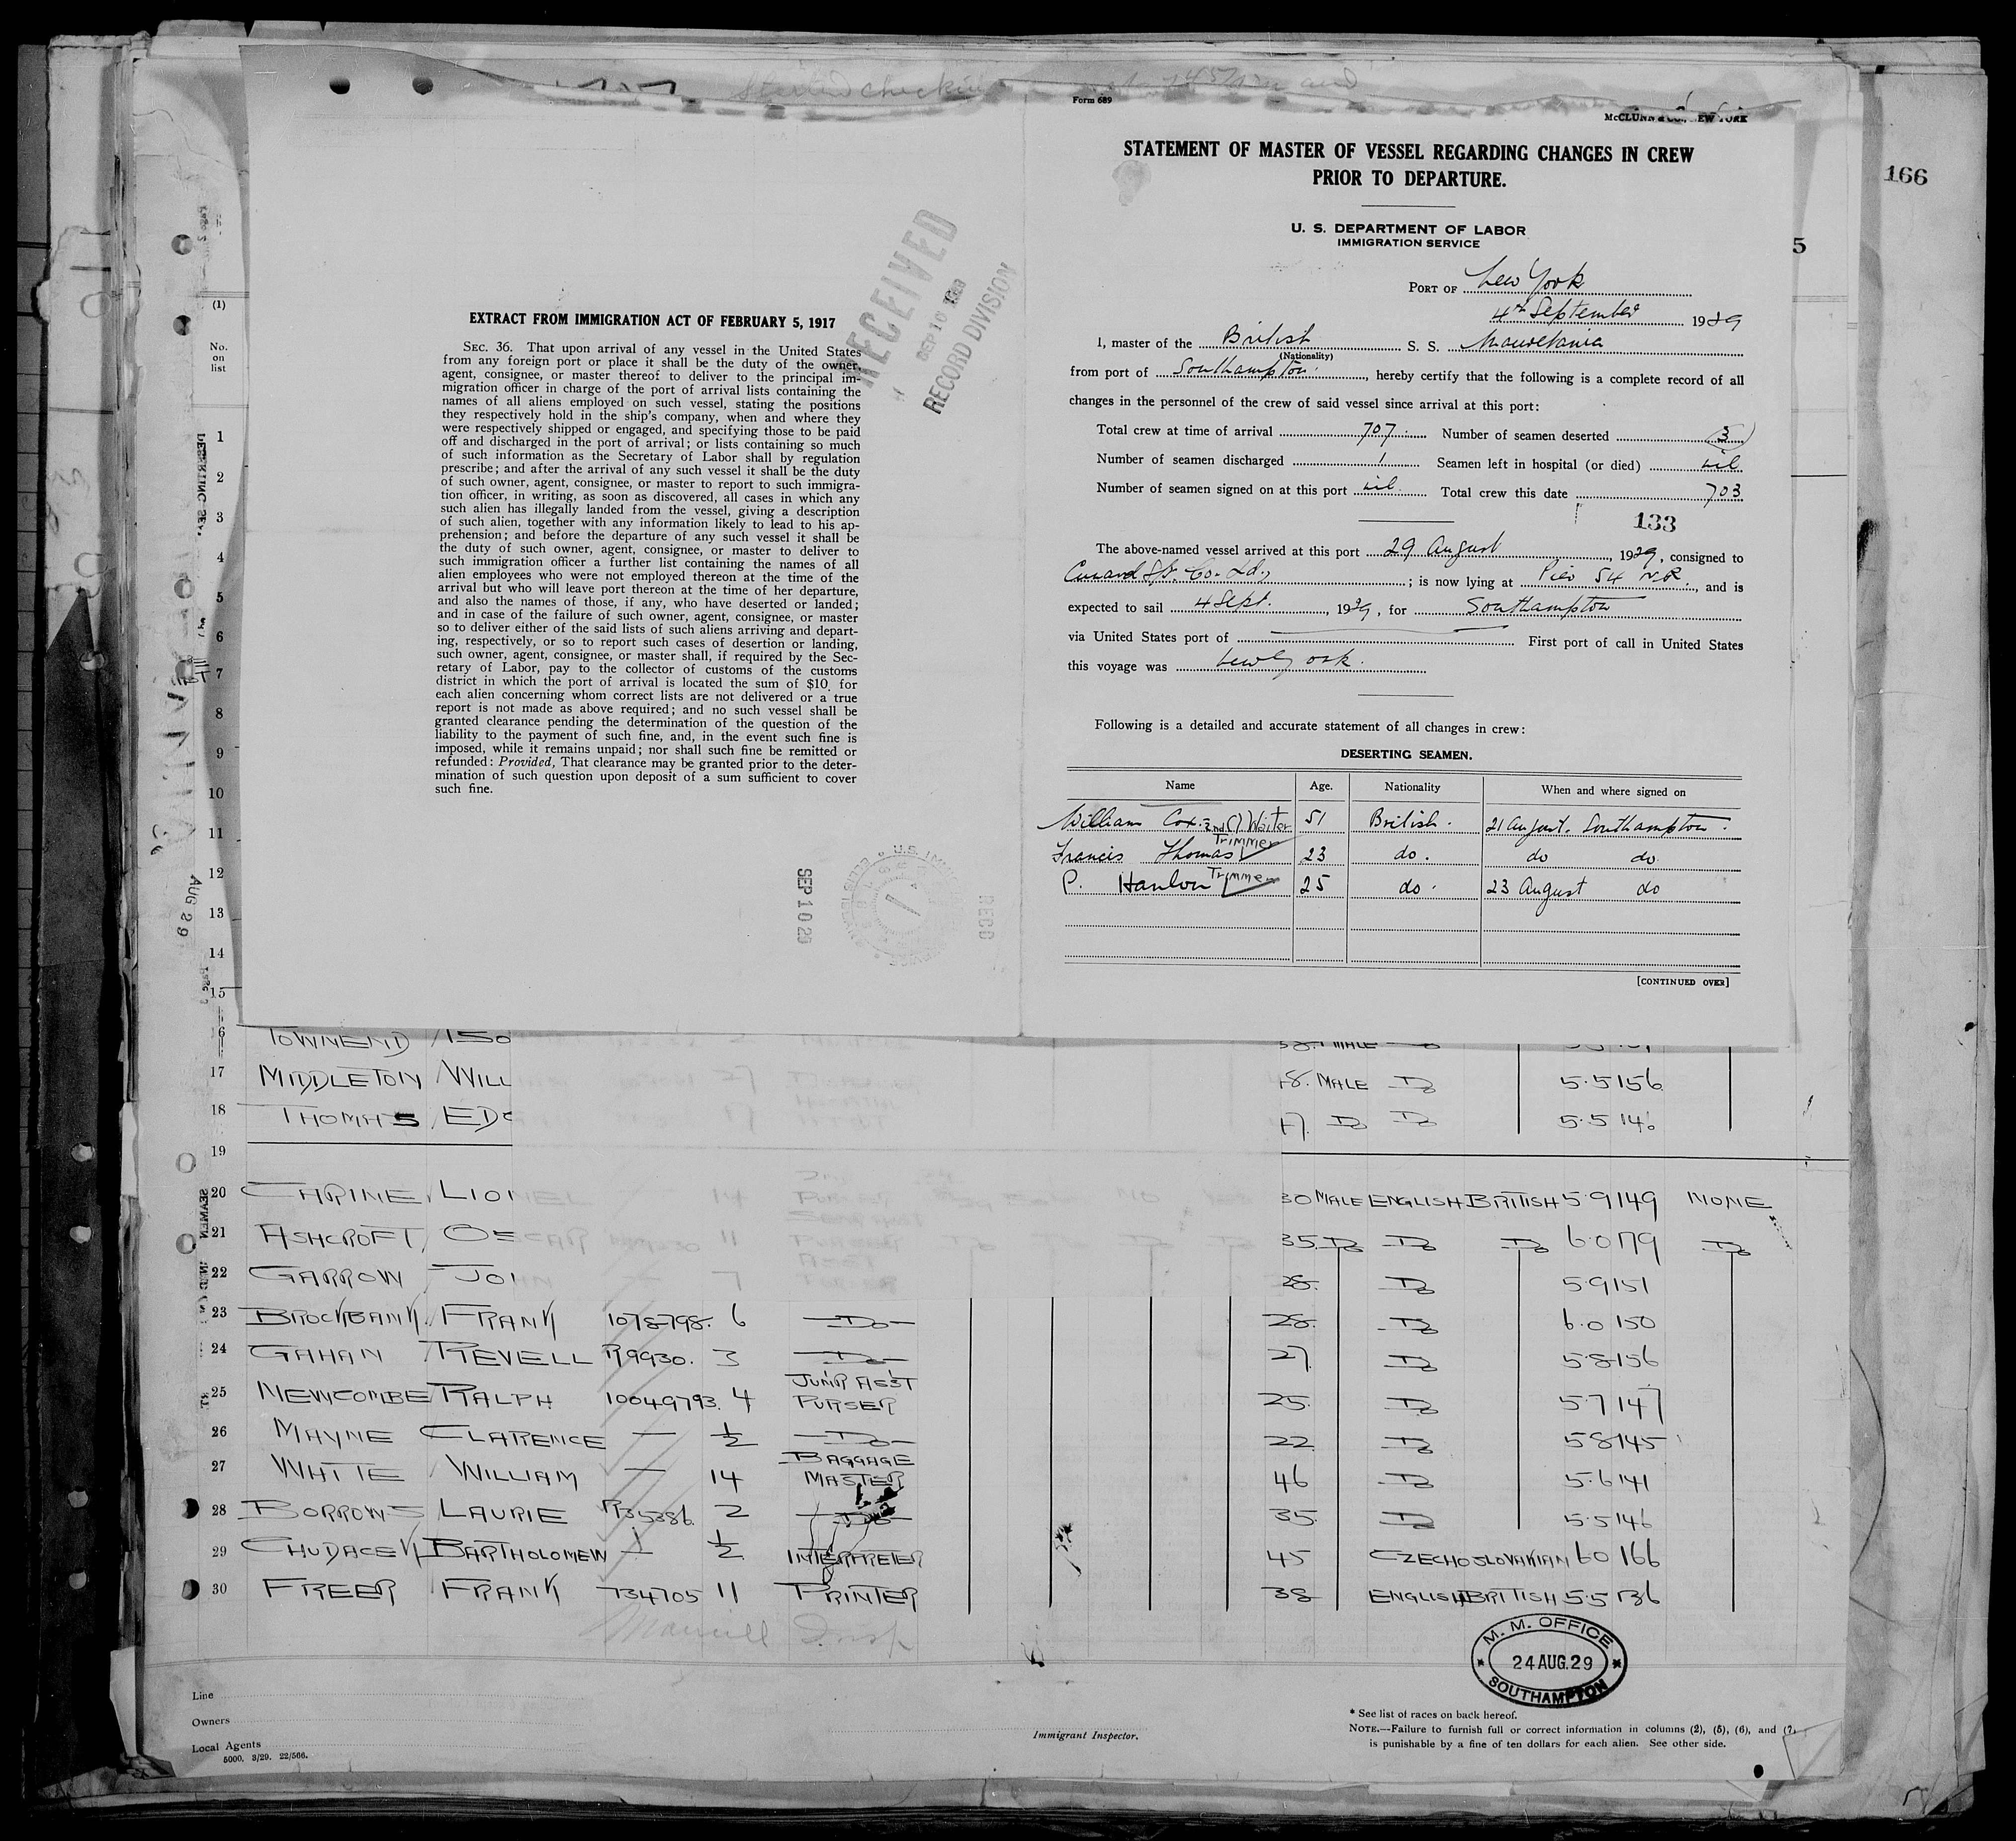 Form 689
166
STATEMENT OF MASTER OF VESSEL REGARDING CHANGES IN CREW
PRIOR TO DEPARTURE.
U. S. DEPARTMENT OF LABOR
IMMIGRATION SERVICE
5
PORT OF New York
4th September 1929
I, master of the British S. S. Mauretania
(Nationality)
from port of Southampton, hereby certify that the following is a complete record of all
changes in the personnel of the crew of said vessel since arrival at this port:
Total crew at time of arrival 707 Number of seamen deserted 3
Number of seamen discharged 1 Seamen left in hospital (or died) nil
Number of seamen signed on at this port nil Total crew this date 703
133
The above-named vessel arrived at this port 29 August, 1929, consigned to
Cunard S/S. Co. Ld,; is now lying at Pier 54 N.R., and is
expected to sail 4 Sept., 1929, for Southampton
via United States port of First port of call in United States
this voyage was New York.
Following is a detailed and accurate statement of all changes in crew:
DESERTING SEAMEN.
Name Age. Nationality When and where signed on
William Cox. 2nd Cl Waiter 51 British. 21 August. Southampton.
Francis Thomas Trimmer 23 do. do do.
P. Hanlon Trimmer 25 do. 23 August do
[CONTINUED OVER]
RECEIVED
SEP 10 1929
RECORD DIVISION
EXTRACT FROM IMMIGRATION ACT OF FEBRUARY 5, 1917
SEC. 36. That upon arrival of any vessel in the United States
from any foreign port or place it shall be the duty of the owner,
agent, consignee, or master thereof to deliver to the principal im-
migration officer in charge of the port of arrival lists containing the
names of all aliens employed on such vessel, stating the positions
they respectively hold in the ship's company, when and where they
were respectively shipped or engaged, and specifying those to be paid
off and discharged in the port of arrival; or lists containing so much
of such information as the Secretary of Labor shall by regulation
prescribe; and after the arrival of any such vessel it shall be the duty
of such owner, agent, consignee, or master to report to such immigra-
tion officer, in writing, as soon as discovered, all cases in which any
such alien has illegally landed from the vessel, giving a description
of such alien, together with any information likely to lead to his ap-
prehension; and before the departure of any such vessel it shall be
the duty of such owner, agent, consignee, or master to deliver to
such immigration officer a further list containing the names of all
alien employees who were not employed thereon at the time of the
arrival but who will leave port thereon at the time of her departure,
and also the names of those, if any, who have deserted or landed;
and in case of the failure of such owner, agent, consignee, or master
so to deliver either of the said lists of such aliens arriving and depart-
ing, respectively, or so to report such cases of desertion or landing,
such owner, agent, consignee, or master shall, if required by the Sec-
retary of Labor, pay to the collector of customs of the customs
district in which the port of arrival is located the sum of $10 for
each alien concerning whom correct lists are not delivered or a true
report is not made as above required; and no such vessel shall be
granted clearance pending the determination of the question of the
liability to the payment of such fine, and, in the event such fine is
imposed, while it remains unpaid; nor shall such fine be remitted or
refunded: Provided, That clearance may be granted prior to the deter-
mination of such question upon deposit of a sum sufficient to cover
such fine.
SEP 10 29
REC'D
(1)
No.
on
list
1
2
3
4
5
6
7
8
9
10
11
12
13
14
15
AUG 29
TOWNEND
17 MIDDLETON WILL 48. MALE Do 5.5 156
18 THOMAS 47. Do Do 5.5 146
19
20 CARINE, LIONEL 14 30 MALE ENGLISH BRITISH 5.9 149 NONE
21 ASHCROFT, OSCAR 11 35 Do Do Do 6.0 179 Do
22 GARROW JOHN 7 28 Do 5.9 151
23 BROCKBANK FRANK 1078798. 6 Do 28. Do 6.0 150
24 GAHAN REVELL R9930. 3 Do 27 Do 5.8 156
25 NEWCOMBE RALPH 10049793. 4 JUNR ASST PURSER 25. Do 5.7 147
26 MAYNE CLARENCE — ½ Do 22 Do 5.8 145
27 WHITE WILLIAM — 14 BAGGAGE MASTER 46 Do 5.6 141
28 BORROWS LAURIE R35386. 2 Do 35 Do 5.5 146
29 CHUDACEK BARTHOLOMEW — ½ INTERPRETER 45 CZECHOSLOVAKIAN 6.0 166
30 FREER FRANK 734705 11 PRINTER 38 ENGLISH BRITISH 5.5 136
M. M. OFFICE
24 AUG. 29
SOUTHAMPTON
Line
Owners
Local Agents
5000. 3/29. 22/566.
Immigrant Inspector.
* See list of races on back hereof.
NOTE.—Failure to furnish full or correct information in columns (2), (5), (6), and (7)
is punishable by a fine of ten dollars for each alien. See other side.